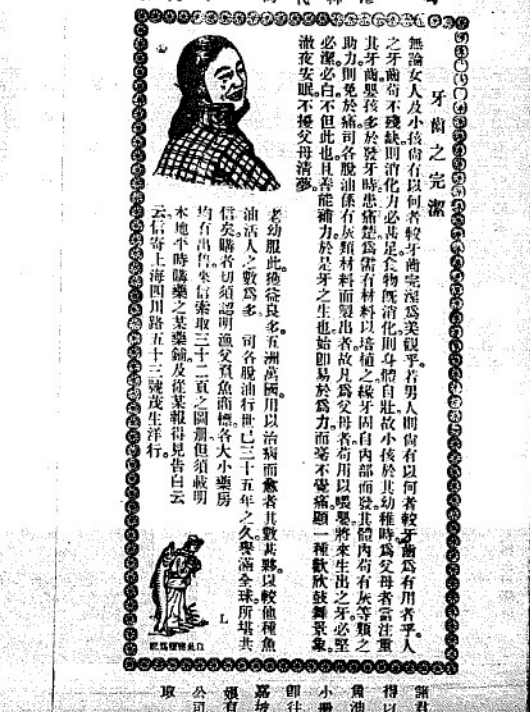 牙齒之完潔
無論女人及小孩尙有以何者較牙齒完潔爲美觀乎若男人則尙有以何者較牙齒爲有用者乎人
之牙齒苟不殘缺則消化力必甚足食物旣消化則身體自壯故小孩於其幼稚時爲父母者當注重
其牙齒嬰孩多於發牙時患痛楚爲需有材料以培植之緣牙固自內部而發其體內苟有灰等類之
助力則免於痛司各脫油係有灰類材料而製出者故凡爲父母者苟用以喂嬰將來生出之牙必堅
必潔必白不但此也且善能補力於是牙之生也始卽易於爲力而毫不覺痛顯一種歡欣鼓舞景象
澈夜安眠不擾父母淸夢
老幼服此獲益良多五洲萬國用以治病而愈者其數甚夥以較他種魚
油活人之數爲多 司各脫油行世已三十五年之久譽滿全球所堪共
信矣購者切須認明漁父負魚商標各大小藥房
均有出售來信索取三十二頁之圖册但須載明
本地平時購藥之某藥鋪及從某報得見告白云
云信寄上海四川路五十三號茂生洋行
L
諸君
得以
魚油
小冊
卽往
嘉坡
公司
取